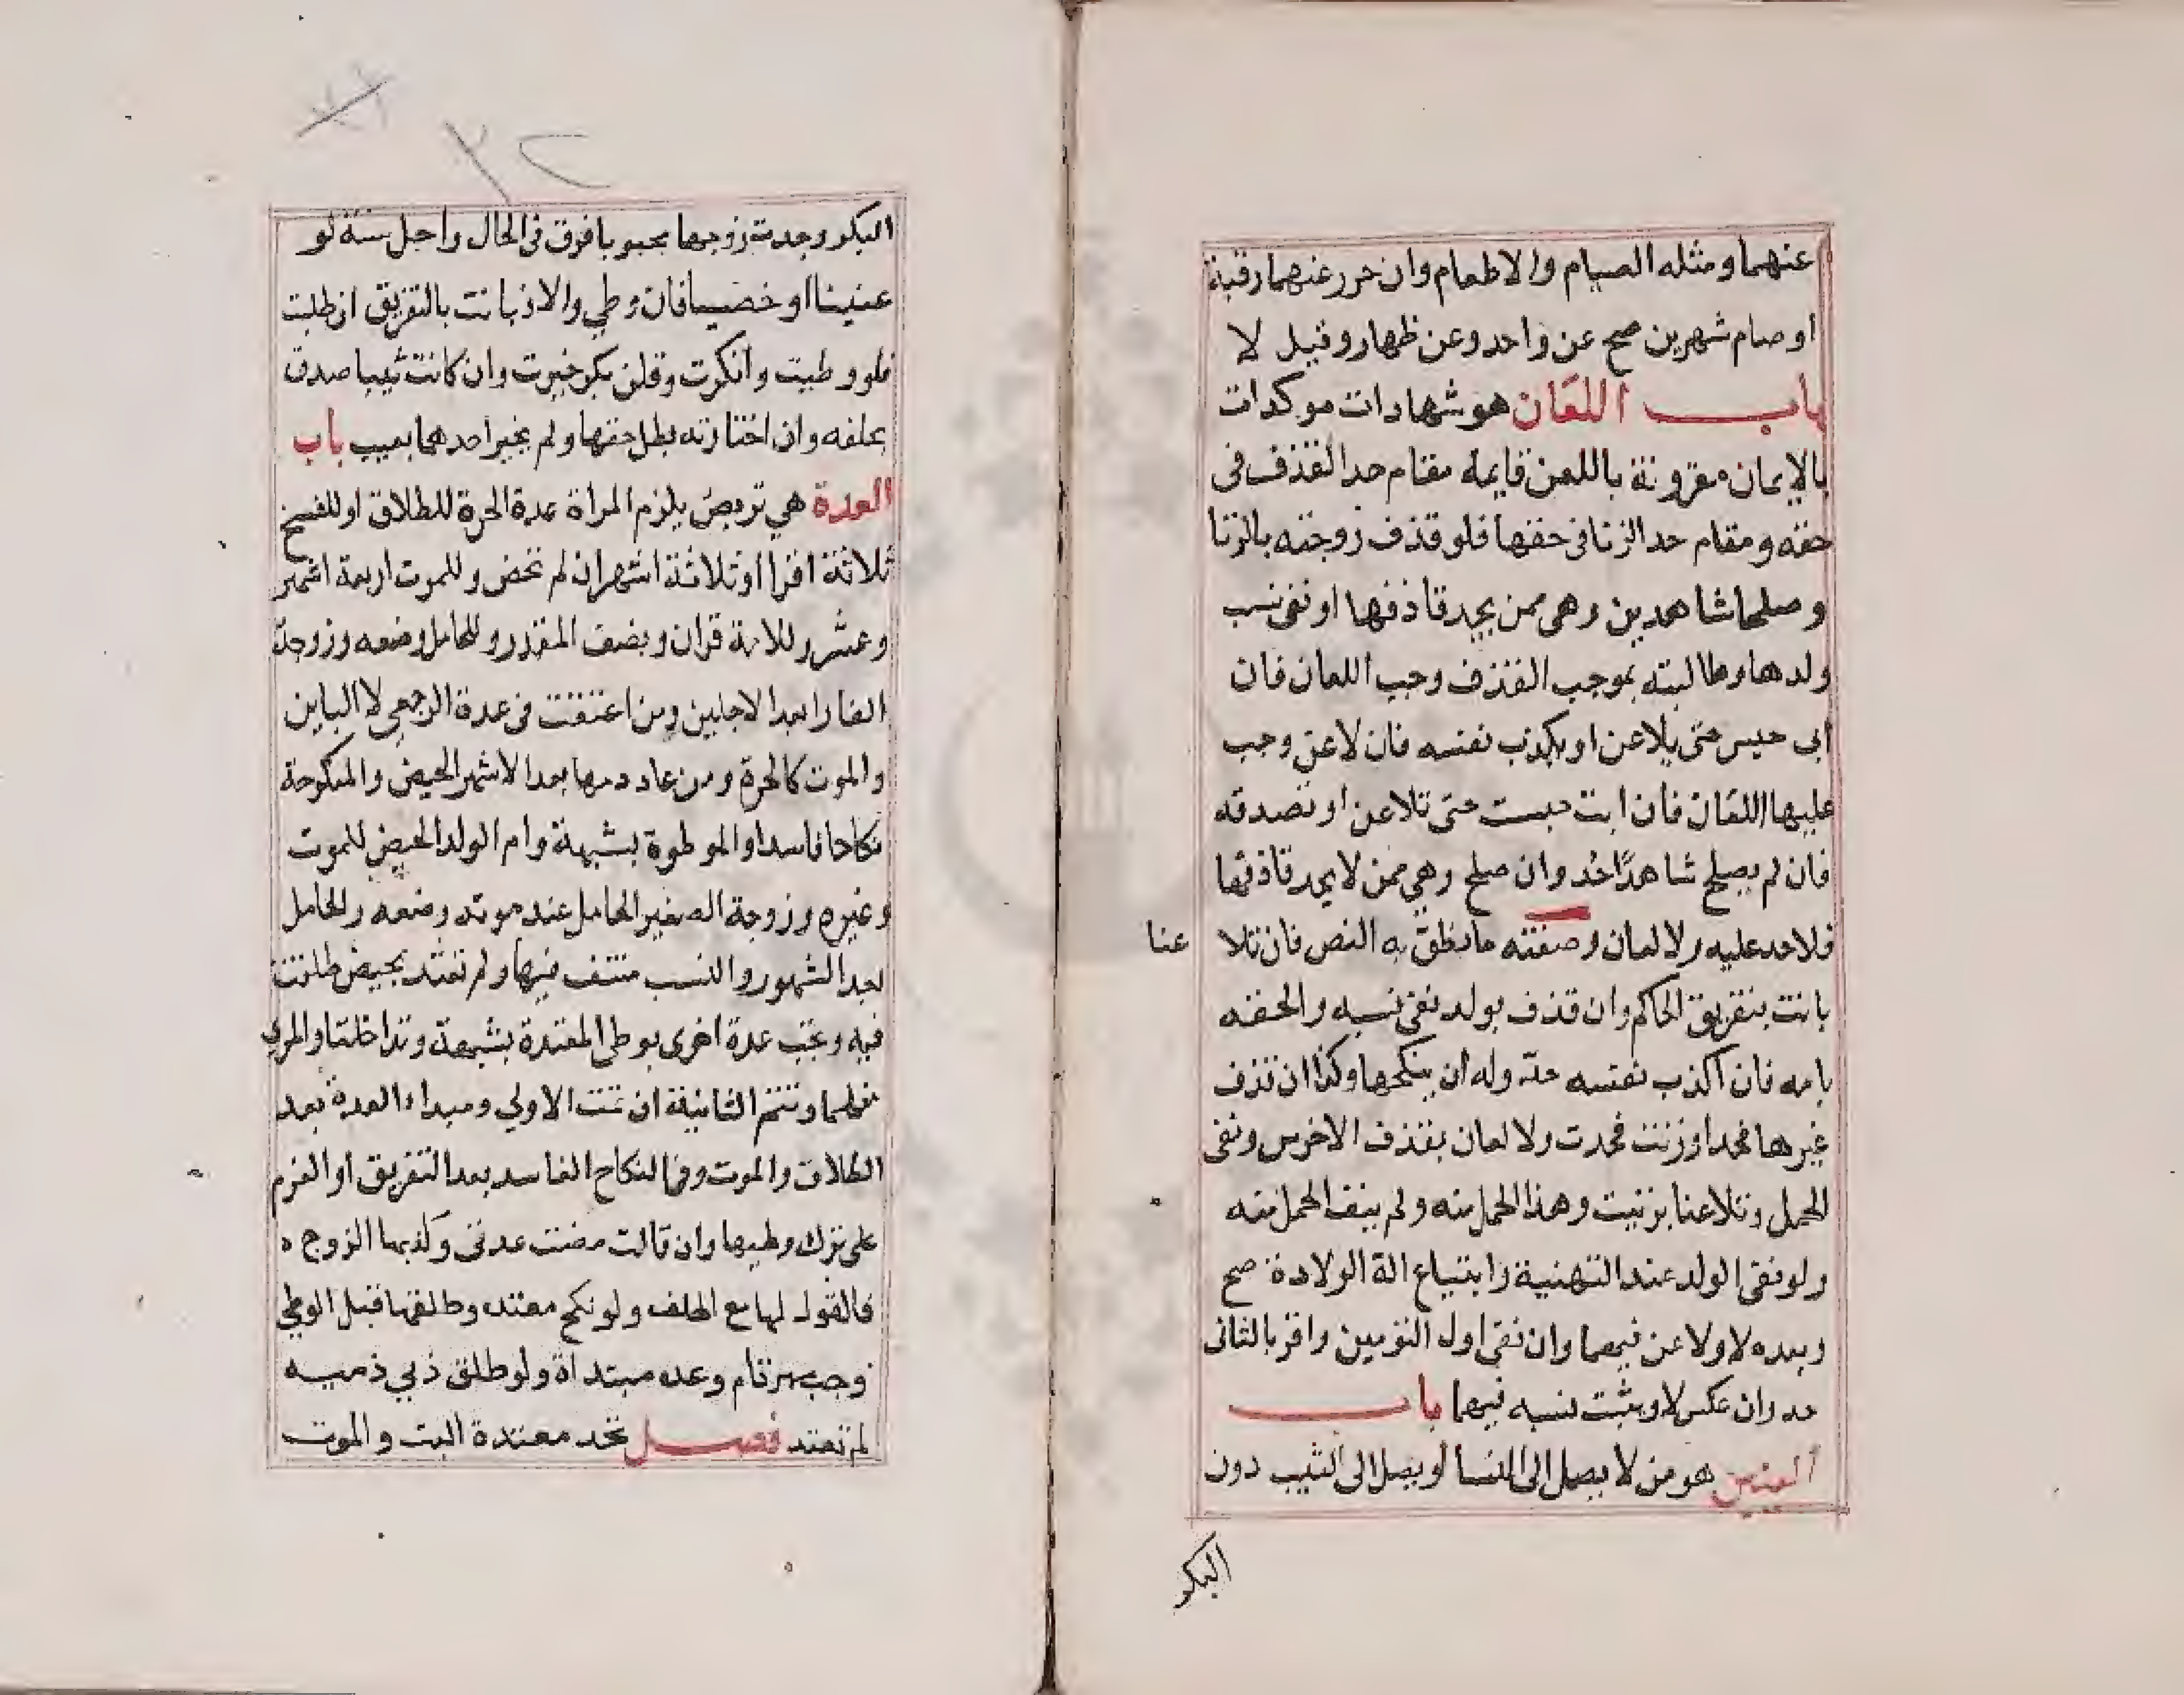 عنهما ومثله الصيام والاطعام وان حرر عنهما رقبة
او صام شهرين صح عن واحد وعن ظهار وقيل لا
باب اللعان هو شهادات موكدات
بالايمان مقرونة باللعن قايمة مقام حد القذف فى
حقه ومقام حد الزنا فى حقها فلو قذف زوجته بالزنا
وصلحا شاهدين وهى ممن يحد قاذفها او نفى نسب
ولدها وطالبته بموجب القذف وجب اللعان فان
ابى حبس حتى يلاعن او يكذب نفسه فان لاعن وجب
عليها اللعان فان ابت حبست حتى تلاعن او تصدقه
فان لم يصلح شاهدًا حُد وان صلح وهى ممن لا يحد قاذفها
فلا حد عليه ولا لعان وصفته ما نطق به النص فان تلا عنا
بانت بتفريق الحاكم وان قذف بولد نفى نسبه والحقه
بامه فان اكذب نفسه حد وله ان ينكحها وكذا ان قذف
غيرها فحد او زنت فحدت ولا لعان بقذف الاخرس ونفى
الحمل وتلاعنا بزنيت وهذا الحمل منه ولم ينف الحمل منه
ولو نفى الولد عند التهنية وابتياع الة الولادة صح
وبعده لا ولاعن فيهما وان نفى اول التومين واقر بالثانى
حد وان عكس لا ويثبت نسبه فيهما باب
العنين هو من لا يصل الى النسا او يصل الى الثيب دون
البكر
البكر وجدت زوجها مجبوبا فرق فى الحال واجل سنة لو
عنينا او خصيا فان وطي والا بانت بالتفريق ان طلبت
فلو وطيت وانكرت وقلن بكر خيرت وان كانت ثيبا صدق
بحلفه وان اختارته بطل حقها ولم يخير احدهما بعيب باب
العدة هي تربص يلزم المراة عدة الحرة للطلاق او للفسخ
ثلاثة اقرا او ثلاثة اشهر ان لم تحض وللموت اربعة اشهر
وعشر وللامة قران ونصف المقدر وللحامل وضعه وزوجة
الفار ابعد الاجلين ومن اعتقت فى عدة الرجعى لا الباين
والموت كالحرة ومن عاد دمها بعد الاشهر الحيض والمنكوحة
نكاحا فاسدا والموطوة بشبهة وام الولد الحيض للموت
وغيره وزوجة الصغير الحامل عند موته وضعه والحامل
بعد الشهور والنسب منتف فيها ولم تعتد بحيض طلقت
فيه وتجب عدة اخرى بوطى المعتدة بشبهة وتداخلتا والمري
منهما وتتم الثانية ان تمت الاولي ومبداء العدة بعد
الطلاق والموت وفى النكاح الفاسد بعد التفريق او العزم
على ترك وطيها وان قالت مضت عدتى وكذبها الزوج
فالقول لها مع الحلف ولو نكح معتدته وطلقها قبل الوطي
وجب مهر تام وعدة مبتداة ولو طلق ذمي ذميه
لم تعتد فصل تحد معتدة البت والموت